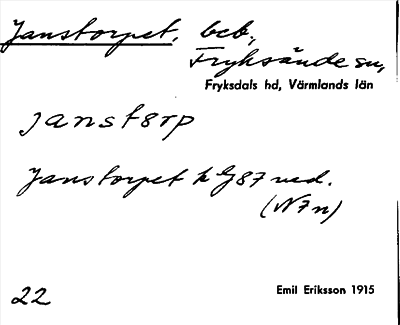 Janstorpet, beb.,
Fryksände sn,
Fryksdals hd, Värmlands län
janstørp
Janstorpet k G87 ned.
(N7n)
22
Emil Eriksson 1915